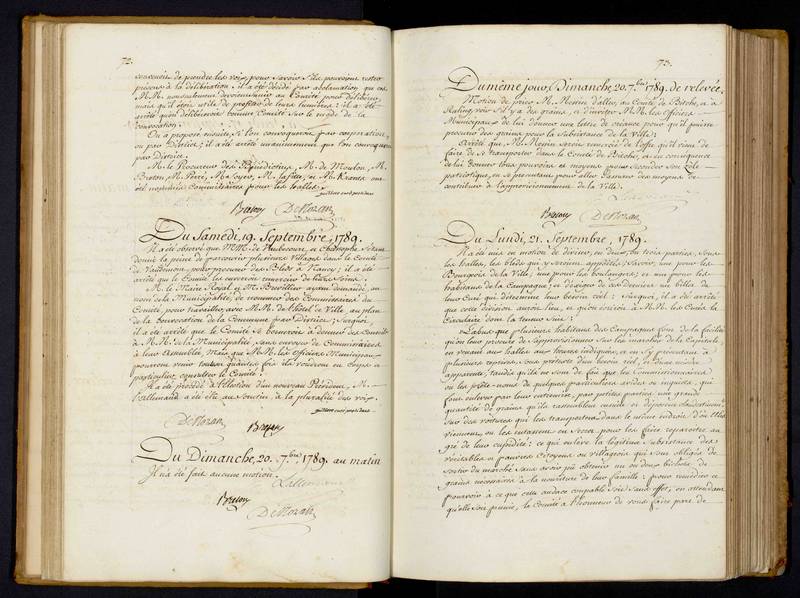 72.
convenoit de prendre les voix, pour savoir s'ils pourroient rester
présens à la délibération : il a été décidé par acclamation que ces
M.M. non seulement devoient venir au Comité pour délibérer,
mais qu'il étoit utile de profiter de leurs lumières : il a été
arrêté qu'on délibéreroit comme Comité sur le mode de la
convocation.
On a proposé ensuite si l'on convoqueroit par corporation,
ou par District ; il a été arrêté unanimement que l'on convoqueroit
par District.
M. le Procureur des Bénédictins, M. de Moulon, M.
Breton, M. Perré, M. La fitte, et M. Krantz ont
été nommés Commissaires pour les halles.
Bureau DeMozan
Du Samedi, 19. Septembre, 1789.
Il a été observé que M.M. de Hubecourt et Christophe s'étant
donné la peine de parcourir plusieurs Villages dans le Comté
de Vaudémont, pour procurer des Bleds à Nancy ; il a été
arrêté que le Comité les enverroit remercier de leurs soins.
M. le Maire Royal et M. ayant demandé, au
nom de la Municipalité, de nommer des Commissaires du
Comité, pour travailler avec M.M. de l'Hôtel de Ville, au plan
de la Convocation de la Commune par District ; Surquoi,
il a été arrêté que le Comité se borneroit à donner des Conseils
à M.M. de la Municipalité, sans envoyer de Commissaires
à leur Assemblée, Mais que M.M. les Officiers Municipaux
pourront venir toutes quantes fois ils voudront en Corps et
particulier, consulter le Comité.
Il a été procédé à l'Élection d'un nouveau Président, M.
Lallemand a été élu au Scrutin à la pluralité des voix.
DeMozan
Du Dimanche, 20. 7.bre, 1789. au matin
Il n'a été fait aucune motion.
Lallemand
DeMozan
73.
Du même jour, Dimanche, 20. 7.bre 1789. de relevée.
Motion de prier M. Messin d'aller, au Comté de Bitche, et à
voir s'il y a des grains, et d'inviter M.M. les Officiers
Municipaux de lui donner une lettre de créance pour qu'il puisse
procurer des grains pour la Subsistance de la Ville :
Arrêté que, M. Messin seroit remercié de l'offre qu'il vient de
faire de se transporter dans le Comté de Bitche, et en conséquence
de lui donner tous pouvoirs et moyens pour seconder son zèle
patriotique, en se procurant pour aller dans des moyens de
contribuer à l'approvisionnement de la Ville.
Lallemand
DeMozan
Du Lundi, 21. Septembre, 1789.
Il a été mis en motion de diviser, en deux, ou trois parties, Sous
les halles, les bleds qui y arrivent, appellés, Savoir, une pour les
Bourgeois de la Ville ; une pour les boulangers ; et une pour les
habitans de la Campagne ; et d'exiger de ces Derniers un billet de
leur Curé qui détermine leur besoin réel : Surquoi, il a été arrêté
que cette division auroit lieu, et qu'on écriroit à M.M. les Curés la
Circulaire dont la teneur suit :
L'abus que plusieurs habitans des Campagnes font de la facilité
qu'on leur procure de s'approvisionner sur les marchés de la Capitale,
en venant aux halles aux heures indiquées, et en s'y présentant à
plusieurs reprises sous prétexte d'un besoin réel, et d'une misère
apparente, tandis qu'ils ne sont de fait que les Commissionnaires
ou les prête-noms de quelques particuliers avides ou injustes, qui
font enlever par leur entremise, par petites parties une grande
quantité de grains qu'ils rassemblent ensuite et déposent clandestinement
Sur des voitures qui les transportent dans le même endroit d'où Elles
viennent, ou les entassent en Secret pour les faire reparoître au
gré de leur cupidité : ce qui enlève la légitime Subsistance des
véritables et pauvres Citoyens ou villageois qui sont obligés de
sortir du marché sans avoir pû obtenir un ou deux bichets de
grains nécessaires à la nourriture de leur famille : pour remédier et
pourvoir à ce que cette audace coupable soit sans effet, en attendant
qu'elle soit punie, le Comité a l'honneur de vous faire part de